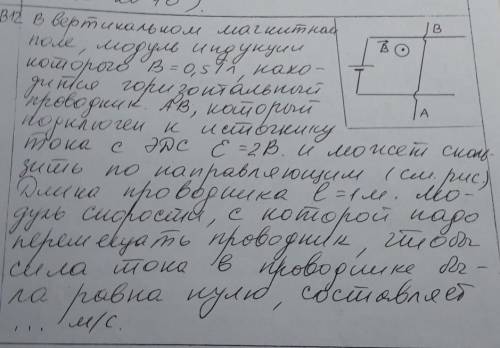 В12 В вертикальном магнитном
поле, модуль индукции
которого B = 0,5 Тл, нахо-
дится горизонтальный
проводник AB, который
подключен к источнику
тока с ЭДС Ɛ = 2В. и может сколь-
зить по направляющим (см. рис)
Длина проводника l = 1м. Мо-
дуль скорости, с которой надо
перемещать проводник, чтобы
сила тока в проводнике бы-
ла равна нулю, составляет
... м/с.
B
B
A